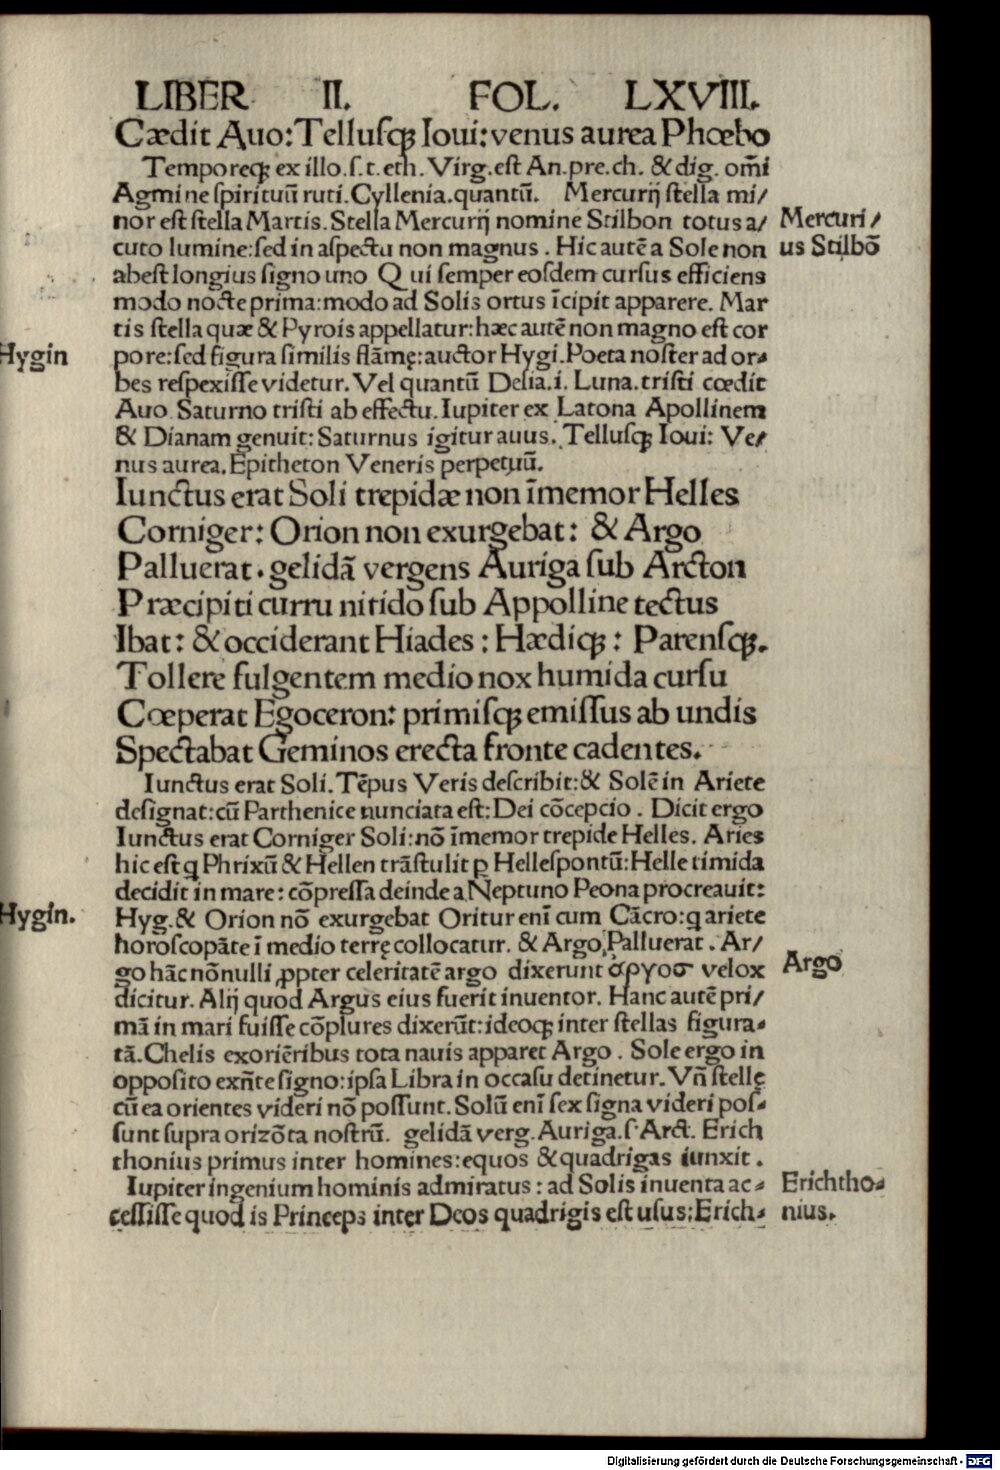 LIBER II. FOL. LXVIII.
Cædit Auo: Tellusqꝫ Ioui: venus aurea Phœbo
Temporeqꝫ ex illo.ſ.t.eth. Virg. eſt An.pre.ch. & dig. om̄i
Agmine ſpirituū ruti. Cyllenia. quantū. Mercurij ſtella mi/
nor eſt ſtella Martis. Stella Mercurij nomine Stilbon totus a/
Mercuri/
cuto lumine: ſed in aſpectu non magnus. Hic autē a Sole non
us Stilbō
abeſt longius ſigno uno Qui ſemper eoſdem curſus efficiens
modo nocte prima: modo ad Solis ortus īcipit apparere. Mar
tis ſtella quæ & Pyrois appellatur: hæc autē non magno eſt cor
Hygin
pore: ſed figura ſimilis flāmę: auctor Hygi. Poeta noſter ad or-
bes reſpexiſſe videtur. Vel quantū Delia.i. Luna. triſti cœdit
Auo Saturno triſti ab effectu. Iupiter ex Latona Apollinem
& Dianam genuit: Saturnus igitur auus. Telluſqꝫ Ioui: Ve/
nus aurea. Epitheton Veneris perpetuū.
Iunctus erat Soli trepidæ non īmemor Helles
Corniger: Orion non exurgebat: & Argo
Palluerat. gelidā vergens Auriga ſub Arcton
Præcipiti curru nitido ſub Appolline tectus
Ibat: & occiderant Hiades: Hædiqꝫ: Parenſqꝫ.
Tollere fulgentem medio nox humida curſu
Cœperat Egoceron: primiſqꝫ emiſſus ab undis
Spectabat Geminos erecta fronte cadentes.
Iunctus erat Soli. Tēpus Veris deſcribit: & Solē in Ariete
deſignat: cū Parthenice nunciata eſt: Dei cōcepcio. Dicit ergo
Iunctus erat Corniger Soli: nō īmemor trepide Helles. Aries
hic eſt q Phrixū & Hellen trāſtulit ꝑ Helleſpontū: Helle timida
decidit in mare: cōpreſſa deinde a Neptuno Peona procreauit:
Hygin.
Hyg. & Orion nō exurgebat Oritur enī cum Cācro: q ariete
horoſcopāte ī medio terrę collocatur. & Argo Palluerat. Ar/
go hāc nōnulli ꝓpter celeritatē argo dixerunt ἀργοσ velox
Argo
dicitur. Alij quod Argus eius fuerit inuentor. Hanc autē pri/
mā in mari fuiſſe cōplures dixerūt: ideoqꝫ inter ſtellas figura-
tā. Chelis exoriētibus tota nauis apparet Argo. Sole ergo in
oppoſito exn̄te ſigno: ipſa Libra in occaſu detinetur. Vn̄ ſtellę
cū ea orientes videri nō poſſunt. Solū enī ſex ſigna videri poſ-
ſunt ſupra orizōta noſtrū. gelidā verg. Auriga.ſ. Arct. Erich
thonius primus inter homines: equos & quadrigas iunxit.
Iupiter ingenium hominis admiratus: ad Solis inuenta ac-
Erichtho-
ceſſiſſe quod is Princeps inter Deos quadrigis eſt uſus: Erich-
nius.
Digitalisierung gefördert durch die Deutsche Forschungsgemeinschaft - DFG